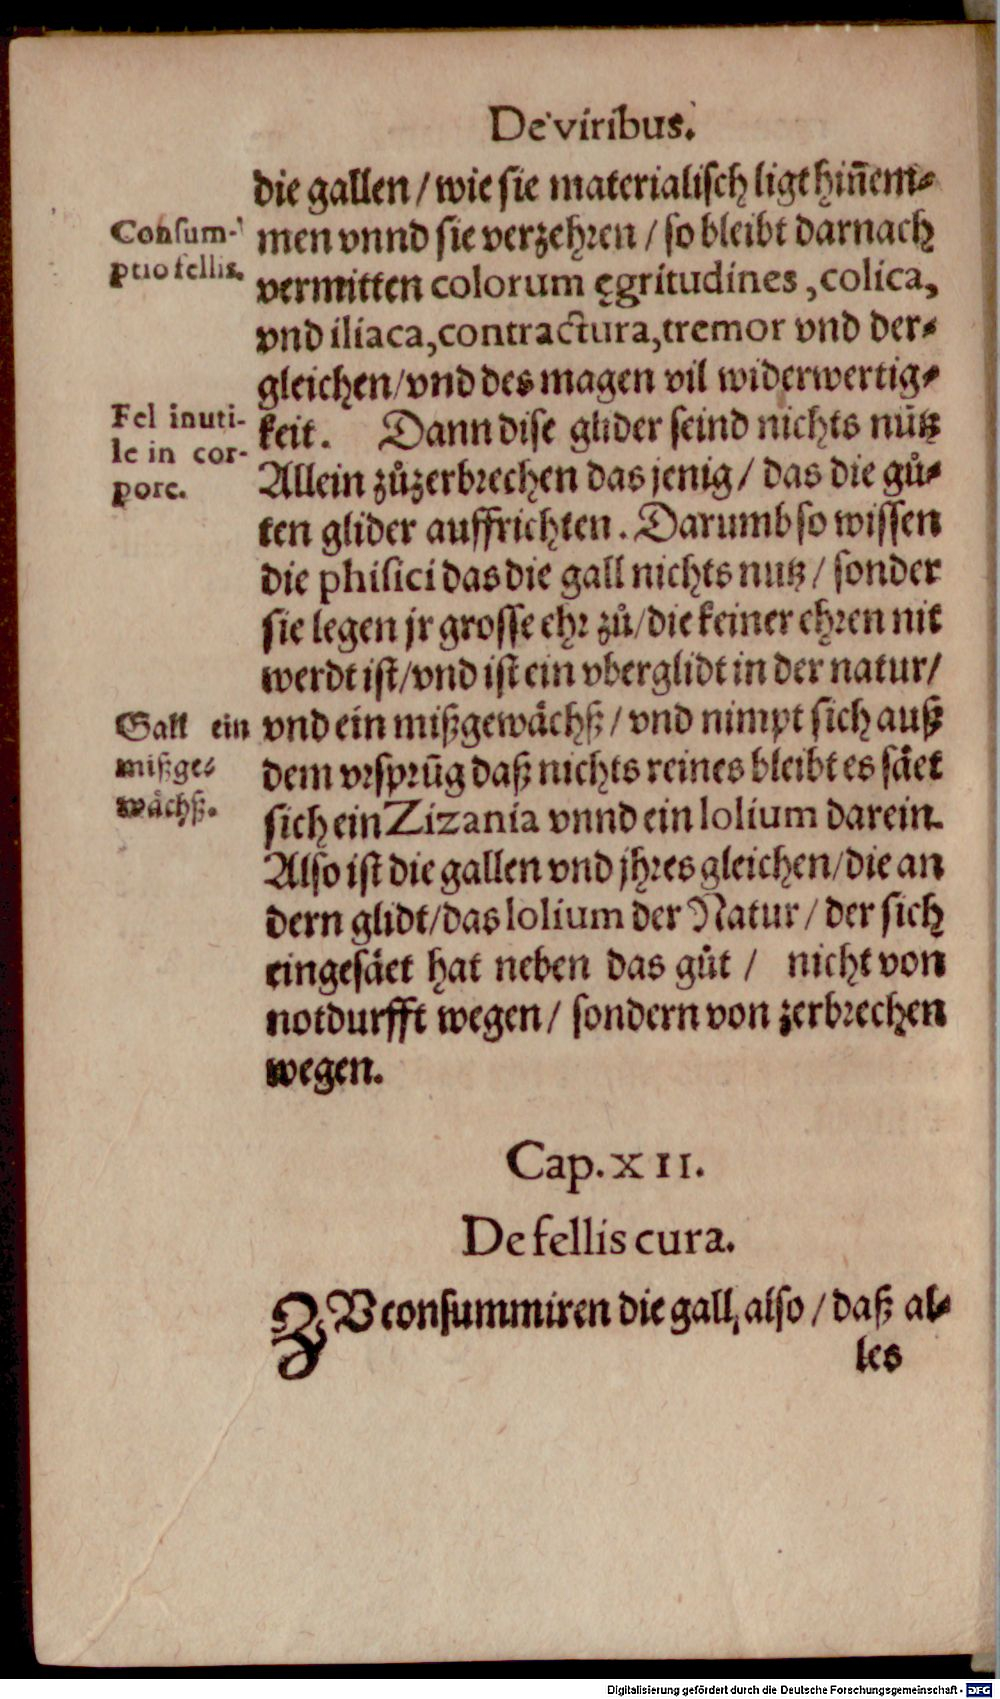 De viribus.
die gallen / wie sie materialisch ligt hin̄em⸗
men vnnd sie verzehren / so bleibt darnach
vermitten colorum ęgritudines, colica,
vnd iliaca, contractura, tremor vnd der⸗
gleichen / vnd des magen vil widerwertig⸗
keit. Dann dise glider seind nichts nütz
Allein zůzerbrechen das jenig / das die gů⸗
ten glider auffrichten. Darumb so wissen
die phisici das die gall nichts nutz / sonder
sie legen jr grosse ehr zů / die keiner ehren nit
werdt ist / vnd ist ein vberglidt in der natur /
vnd ein mißgewächß / vnd nimpt sich auß
dem vrsprūg daß nichts reines bleibt es säet
sich ein Zizania vnnd ein lolium darein.
Also ist die gallen vnd jhres gleichen / die an
dern glidt / das lolium der Natur / der sich
eingesäet hat neben das gůt / nicht von
notdurfft wegen / sondern von zerbrechen
wegen.
Consum-
ptio fellis.
Fel inuti-
le in cor-
pore.
Gall ein
mißge⸗
wächß.
Cap. XII.
De fellis cura.
ZV consummiren die gall, also / daß al⸗
les
Digitalisierung gefördert durch die Deutsche Forschungsgemeinschaft - DFG